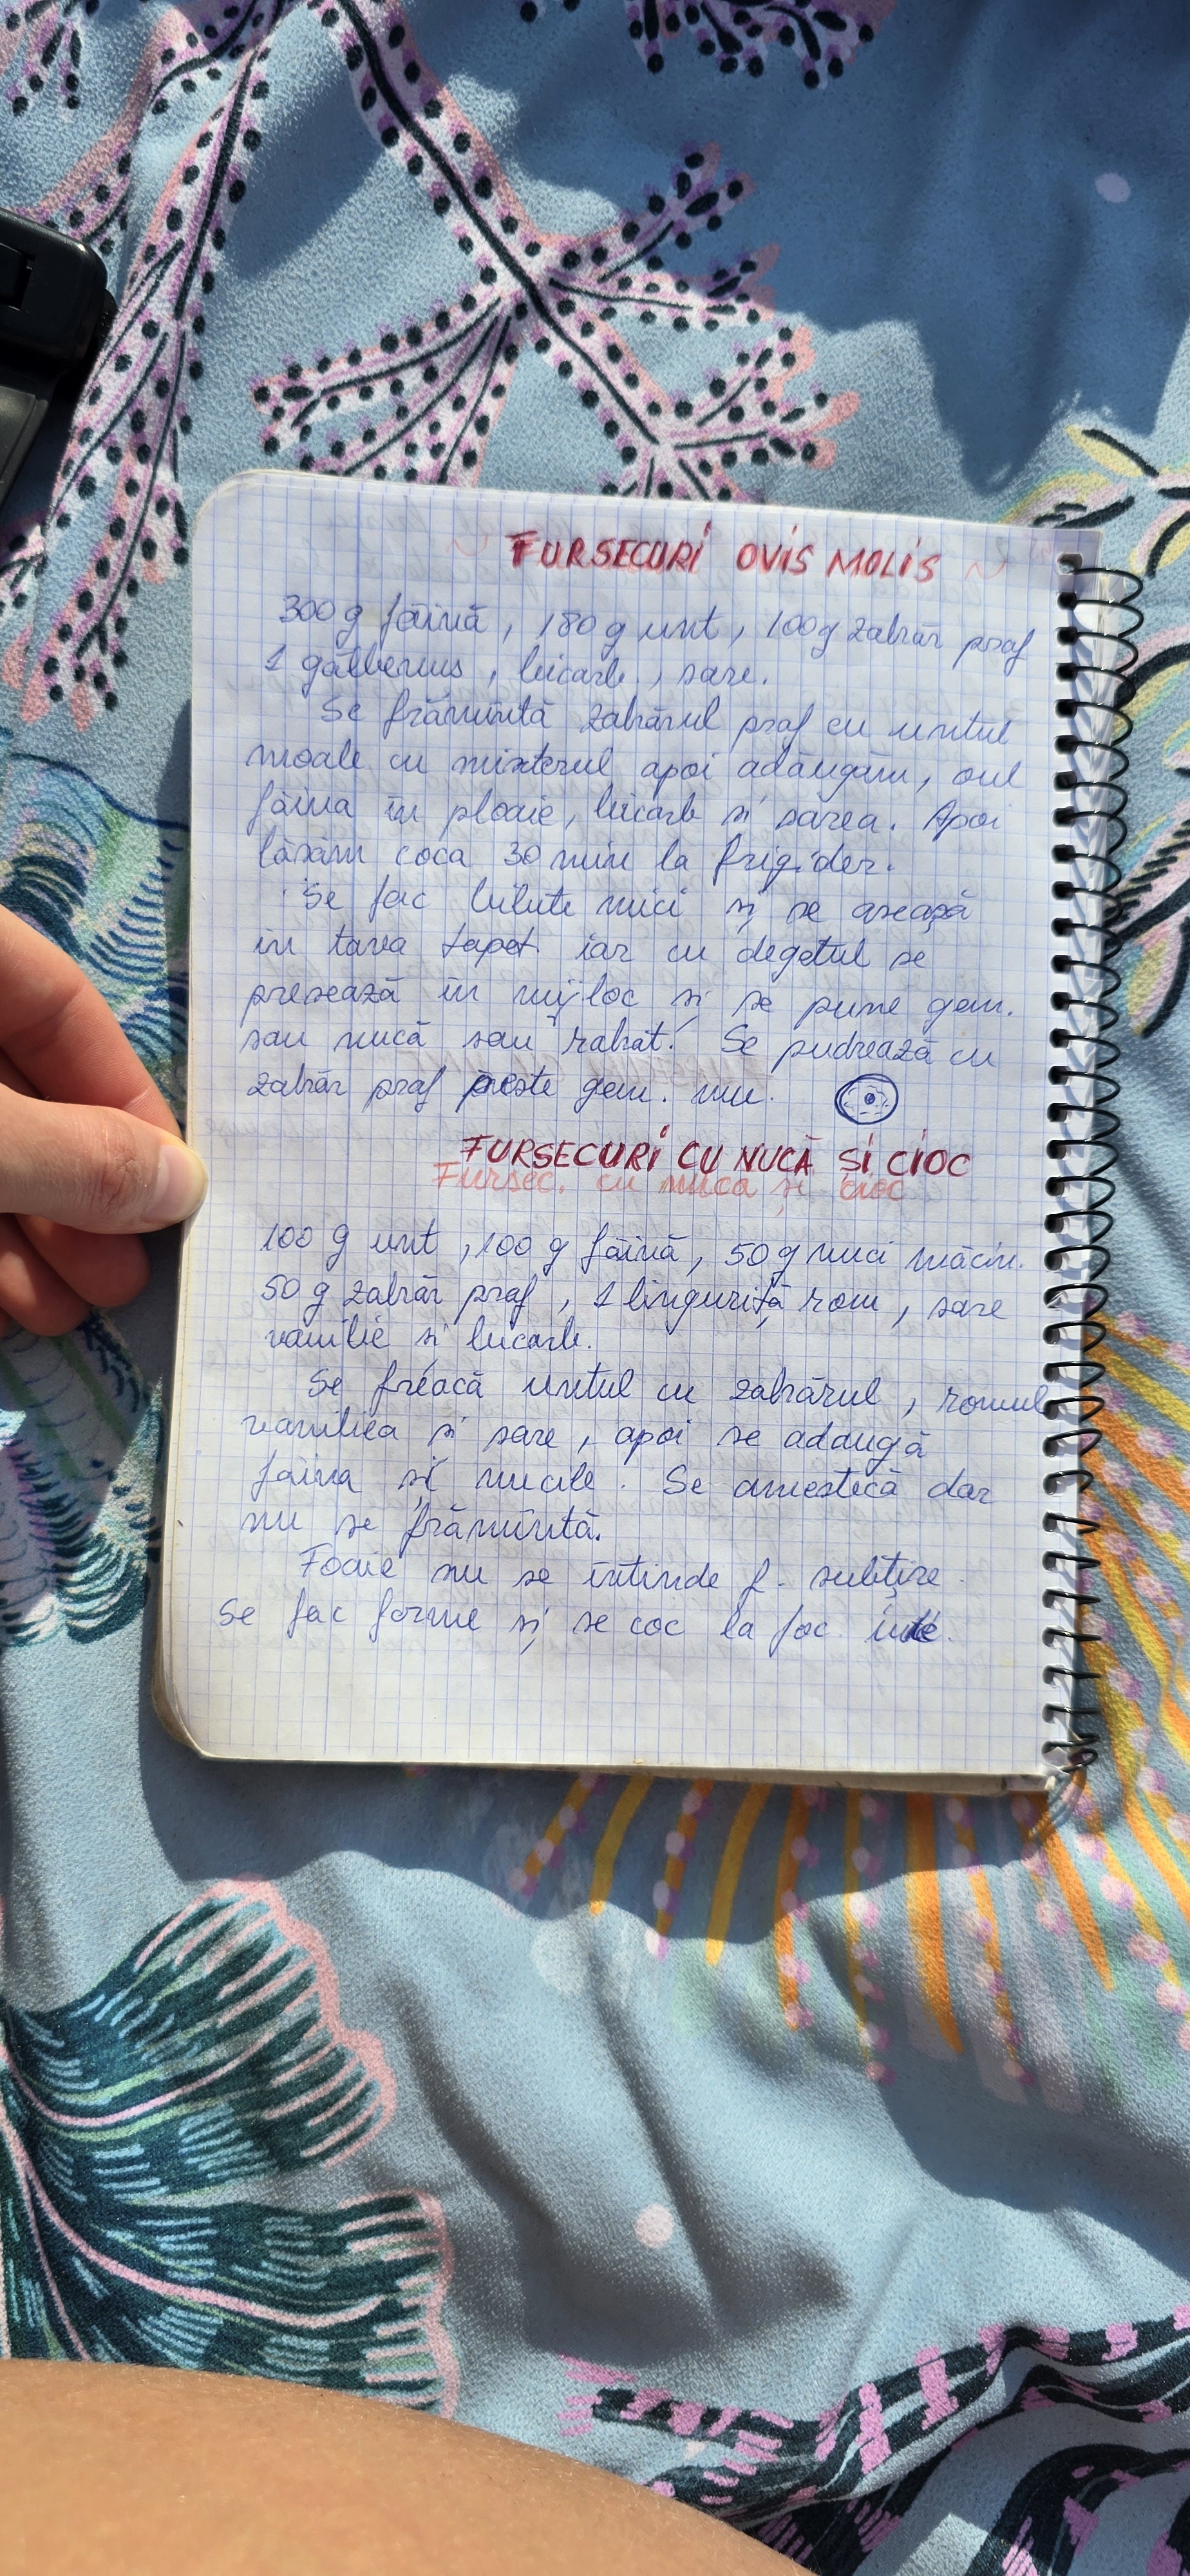 FURSECURI OVIS MOLIS
300 g făină, 180 g unt, 100 g zahăr praf
1 gălbenuș, bicarb, sare.
Se frămîntă zahărul praf cu untul
moale cu mixerul apoi adăugăm, oul
făina în ploaie, bicarb și sarea. Apoi
lăsăm coca 30 min la frigider.
Se fac bilute mici și se asează
în tava tapet. iar cu degetul se
presează în mijloc și se pune gem.
sau nucă sau rahat. Se pudrează cu
zahăr praf peste gem. nu.
FURSECURI CU NUCĂ ȘI CIOC
Fursec. cu nuca și cioc
100 g unt, 100 g făină, 50 g nuci măcin.
50 g zahăr praf, 1 linguriță rom, sare
vanilie și bicarb.
Se freacă untul cu zahărul, romul
vaniliea și sare, apoi se adaugă
făina și nucile. Se amestică dar
nu se frămîntă.
Foaie nu se întinde f. subțire.
Se fac forme și se coc la foc